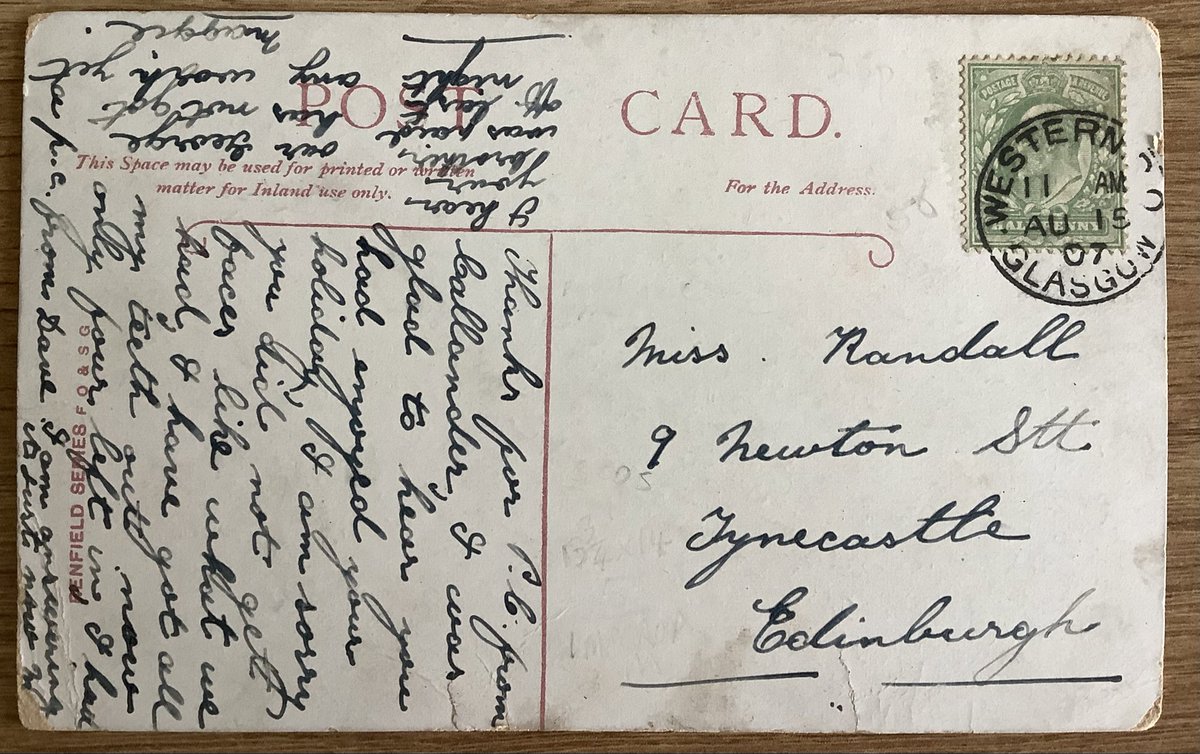 POST CARD.
This Space may be used for printed or written
matter for Inland use only.
For the Address.
POSTAGE REVENUE
WESTERN
11 AM
AU 15
07
GLASGOW
Miss. Randall
9 Newton Stt
Tynecastle
Edinburgh
Thanks for P.C. from
Callander, I was
glad to hear you
had enjoyed your
holiday, I am sorry
you did not gett
faces like what we
had, I have got all
my teeth outt now
only four left in, I had
a p.c. from Dave. I am answering
it just now
I hear
your
brother
was paid
off last
night
our George
has not got
any work yet
Maggie.
PENFIELD SERIES F O & S G